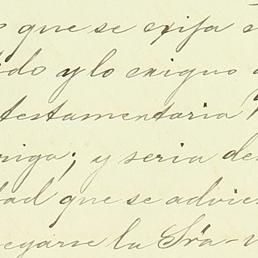 que se exija
ido y lo exiguo
testamentaria
riga; y seria de
dad que se advier
egarse la Sra.